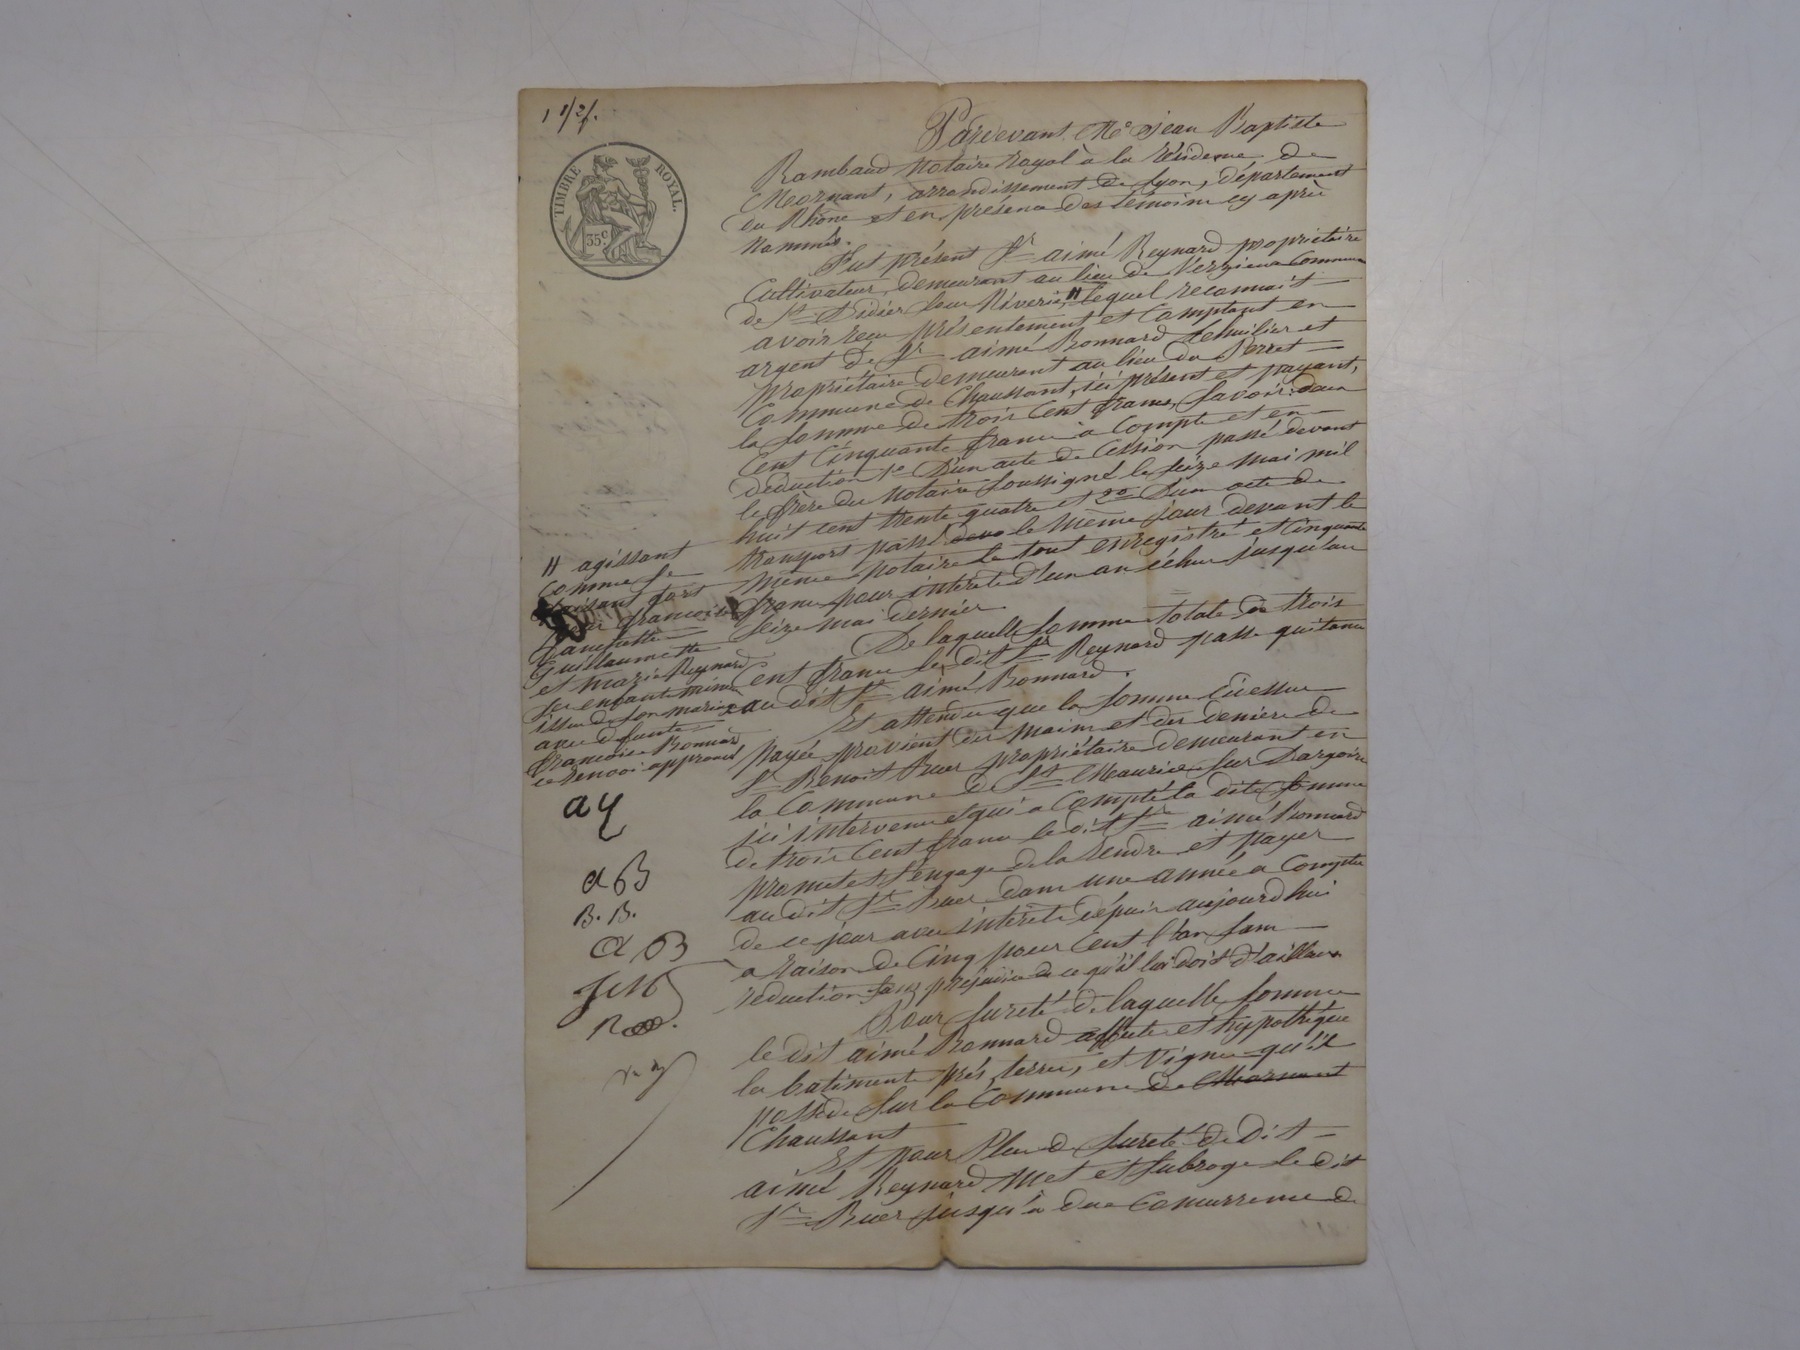 1 1/2 f.
TIMBRE ROYAL.
35 c
Pardevant Me Jean Baptiste
Rambaud Notaire Royal à la résidence de
Mornant, arrondissement de Lyon, département
du Rhône et en présence des témoins cy après
Nommés.
Fut présent Sr aimé Reynard propriétaire
Cultivateur demeurant au lieu de Commune
de St Didier sous Riverie, // lequel reconnait
avoir reçu présentement et Comptant en
argent de Sr aimé Bonnard et
propriétaire demeurant au lieu du Perret
Commune de Chaussant, ici présent et payant,
la somme de trois Cent francs, Savoir: deux
Cent Cinquante francs à Compte et en
déduction 1o D'un acte de Cession passé devant
le frère du Notaire soussigné le seize Mai mil
huit cent trente quatre et 2o D'un acte de
transport passé le Même jour devant le
Même Notaire le tout enregistré et Cinquante
francs pour intérêts d'un an échu jusqu'au
Seize mai dernier
De laquelle somme totale de trois
Cent francs le dit Sr Reynard passe quitance
au dit Sr aimé Bonnard.
Et attendu que la somme ci dessus
payée provient des mains et des deniers de
Sr Benoit Buer propriétaire demeurant en
la Commune de St Maurice sur Dargoire
ici intervenu et qui a Compté la dite somme
de trois Cent francs le dit Sr aimé Bonnard
promet et s'engage de la rendre et payer
au dit Sr Buer dans une année a Compter
de ce jour avec intérêts dépuis aujourd'hui
a raison de Cinq pour Cent l'an sans
réduction sans préjudice de ce qu'il lui doit d'ailleurs
Pour sureté de laquelle somme
le dit aimé Bonnard affecte et hypothéque
les batiments prés, terres, et vignes qu'il
possède sur la Commune de Mornant
Chaussant
Et pour Plus de sureté le Dit
aimé Reynard Met et subroge le dit
Sr Buer jusqu'à due Concurrence de
// agissant
Comme se
faisant fort
pour francoise
Guillaumette
et marie Reynard
ses enfants mineurs
issus de son mariage
avec défunte
francoise Bonnard
ce renvoi approuvé
a B
B. B.